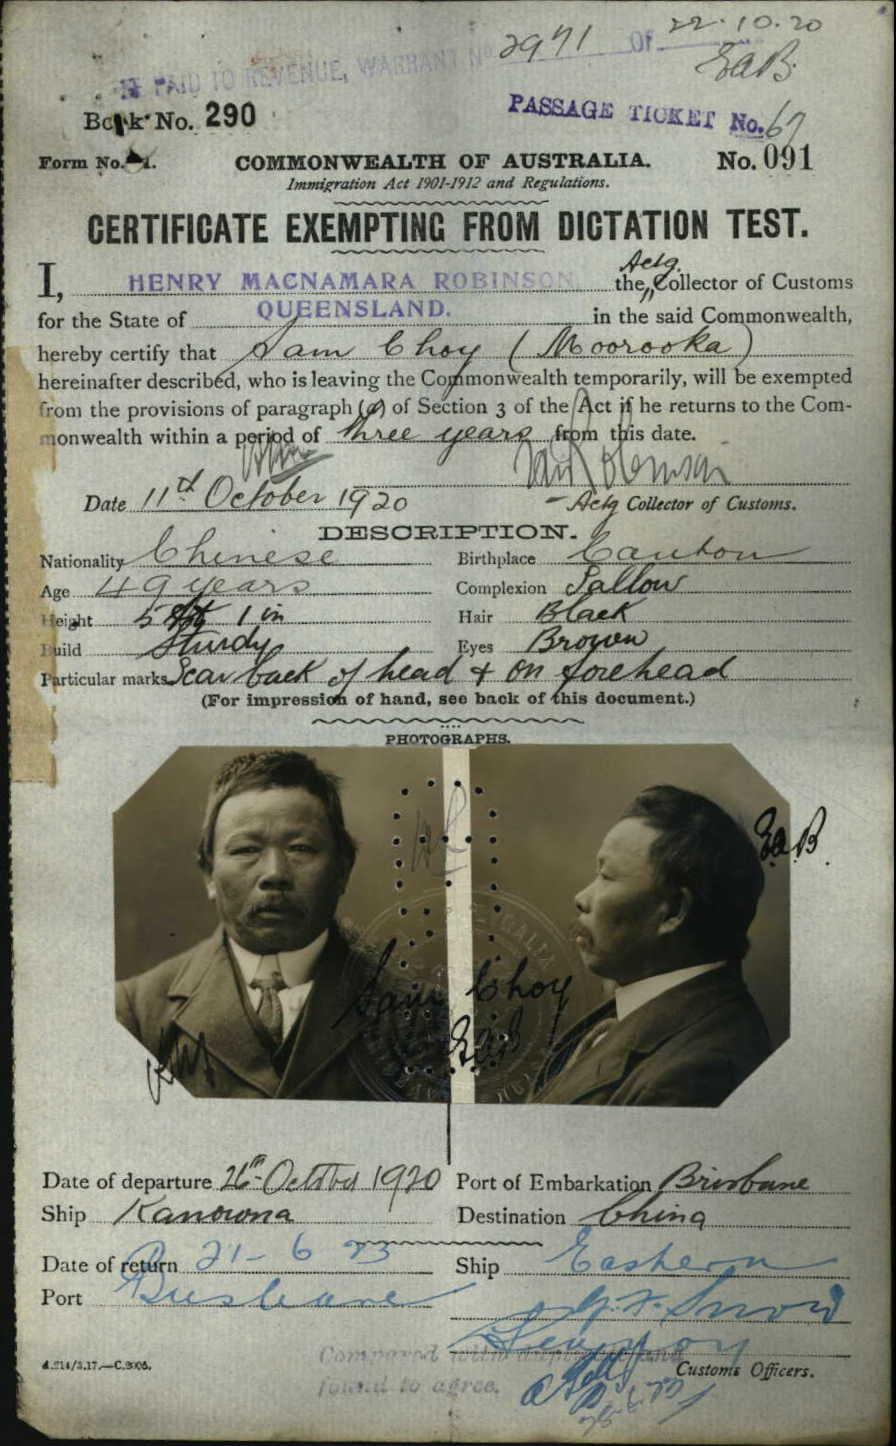 22.10.20
PAID TO REVENUE, WARRANT No 2971 OF
EaB.
Book No. 290
PASSAGE TICKET No. 67
Form No. 21.
COMMONWEALTH OF AUSTRALIA.
No. 091
Immigration Act 1901-1912 and Regulations.
CERTIFICATE EXEMPTING FROM DICTATION TEST.
I, HENRY MACNAMARA ROBINSON the Actg Collector of Customs
for the State of QUEENSLAND. in the said Commonwealth,
hereby certify that Sam Choy (Moorooka)
hereinafter described, who is leaving the Commonwealth temporarily, will be exempted
from the provisions of paragraph (a) of Section 3 of the Act if he returns to the Com-
monwealth within a period of three years from this date.
Date 11th October 1920
Actg Collector of Customs.
DESCRIPTION.
Nationality Chinese Birthplace Canton
Age 49 years Complexion Sallow
Height 5 ft 1 in Hair Black
Build Sturdy Eyes Brown
Particular marks Scar back of head & on forehead
(For impression of hand, see back of this document.)
PHOTOGRAPHS.
EaB.
Sam Choy
EaB
Date of departure 26th October 1920 Port of Embarkation Brisbane
Ship Kanowna Destination China
Date of return 21-6 23 Ship Eastern
Port Brisbane
Compared with duplicate and
found to agree.
Customs Officers.
A.214/3.17.—C.3005.